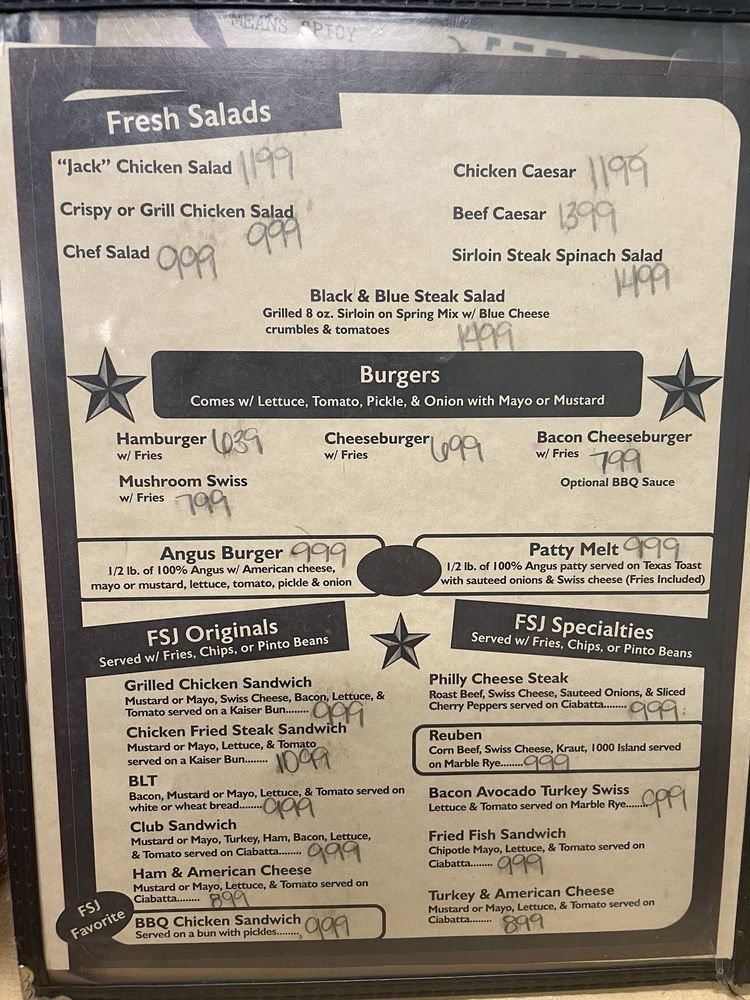 MEANS SPICY
Fresh Salads
"Jack" Chicken Salad 1199
Chicken Caesar 1199
Crispy or Grill Chicken Salad 999
Beef Caesar 1399
Chef Salad 999
Sirloin Steak Spinach Salad 1499
Black & Blue Steak Salad
Grilled 8 oz. Sirloin on Spring Mix w/ Blue Cheese
crumbles & tomatoes 1499
Burgers
Comes w/ Lettuce, Tomato, Pickle, & Onion with Mayo or Mustard
Hamburger 639
w/ Fries
Cheeseburger 699
w/ Fries
Bacon Cheeseburger
w/ Fries 799
Optional BBQ Sauce
Mushroom Swiss
w/ Fries 799
Angus Burger 999
1/2 lb. of 100% Angus w/ American cheese,
mayo or mustard, lettuce, tomato, pickle & onion
Patty Melt 999
1/2 lb. of 100% Angus patty served on Texas Toast
with sauteed onions & Swiss cheese (Fries Included)
FSJ Originals
Served w/ Fries, Chips, or Pinto Beans
Grilled Chicken Sandwich
Mustard or Mayo, Swiss Cheese, Bacon, Lettuce, &
Tomato served on a Kaiser Bun........ 999
Chicken Fried Steak Sandwich
Mustard or Mayo, Lettuce, & Tomato
served on a Kaiser Bun........ 1099
BLT
Bacon, Mustard or Mayo, Lettuce, & Tomato served on
white or wheat bread........
Club Sandwich
Mustard or Mayo, Turkey, Ham, Bacon, Lettuce,
& Tomato served on Ciabatta........ 999
Ham & American Cheese
Mustard or Mayo, Lettuce, & Tomato served on
Ciabatta........ 899
FSJ
Favorite
BBQ Chicken Sandwich
Served on a bun with pickles........ 999
FSJ Specialties
Served w/ Fries, Chips, or Pinto Beans
Philly Cheese Steak
Roast Beef, Swiss Cheese, Sauteed Onions, & Sliced
Cherry Peppers served on Ciabatta........ 999
Reuben
Corn Beef, Swiss Cheese, Kraut, 1000 Island served
on Marble Rye........ 999
Bacon Avocado Turkey Swiss
Lettuce & Tomato served on Marble Rye........ 999
Fried Fish Sandwich
Chipotle Mayo, Lettuce, & Tomato served on
Ciabatta........ 999
Turkey & American Cheese
Mustard or Mayo, Lettuce, & Tomato served on
Ciabatta........ 899